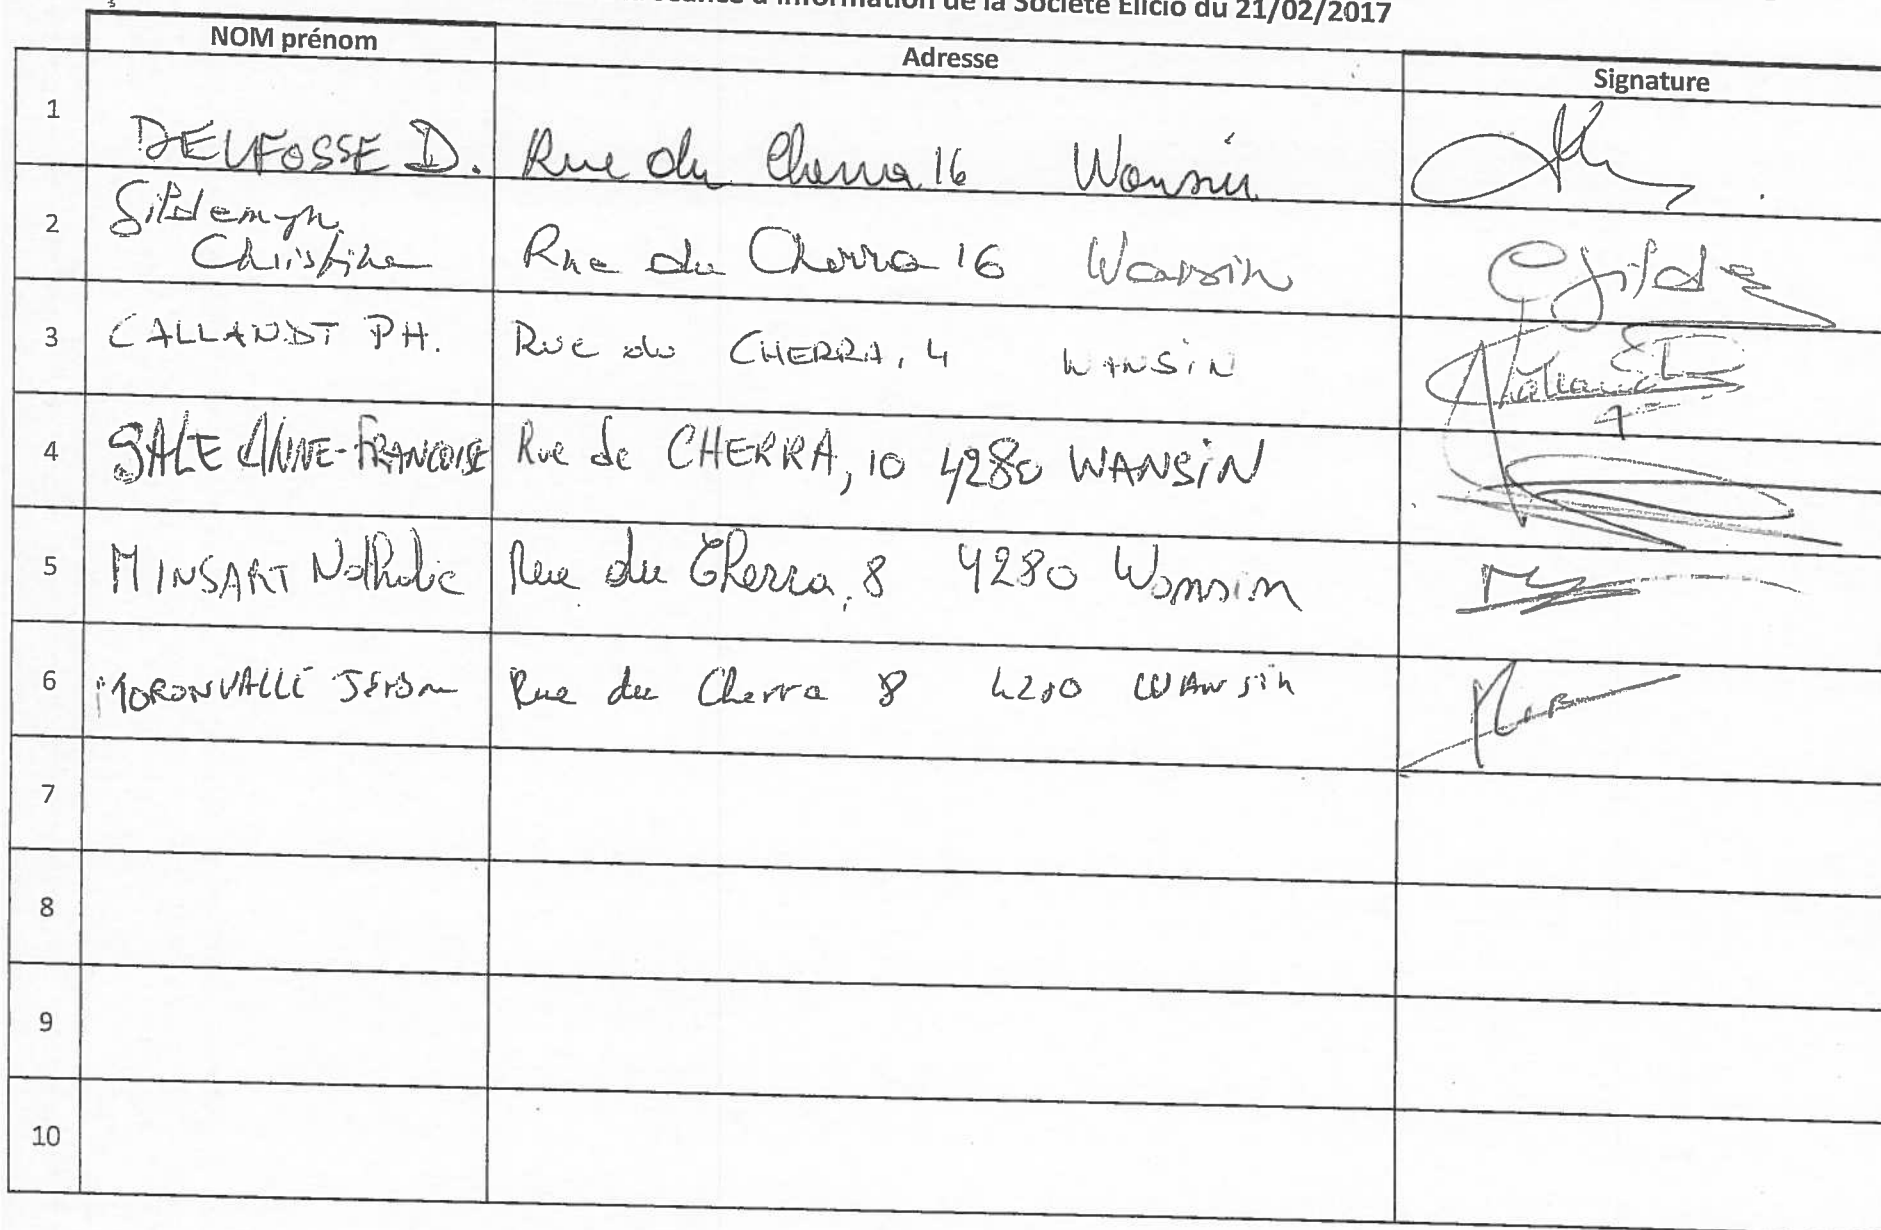 d'information de la Société Elicio du 21/02/2017
NOM prénom Adresse Signature
1 DELFOSSE D. Rue du Cherra 16 Wansin
2 Gildemyn Christine Rue du Cherra 16 Wansin
3 CALLANDT PH. Rue du CHERRA, 4 WANSIN
4 SALE ANNE-FRANCOISE Rue de CHERRA, 10 4280 WANSIN
5 MINSART Nathalie Rue du Cherra, 8 4280 Wansin
6 MORONVALLE Jérôm Rue du Cherra 8 4280 WANSIN
7
8
9
10